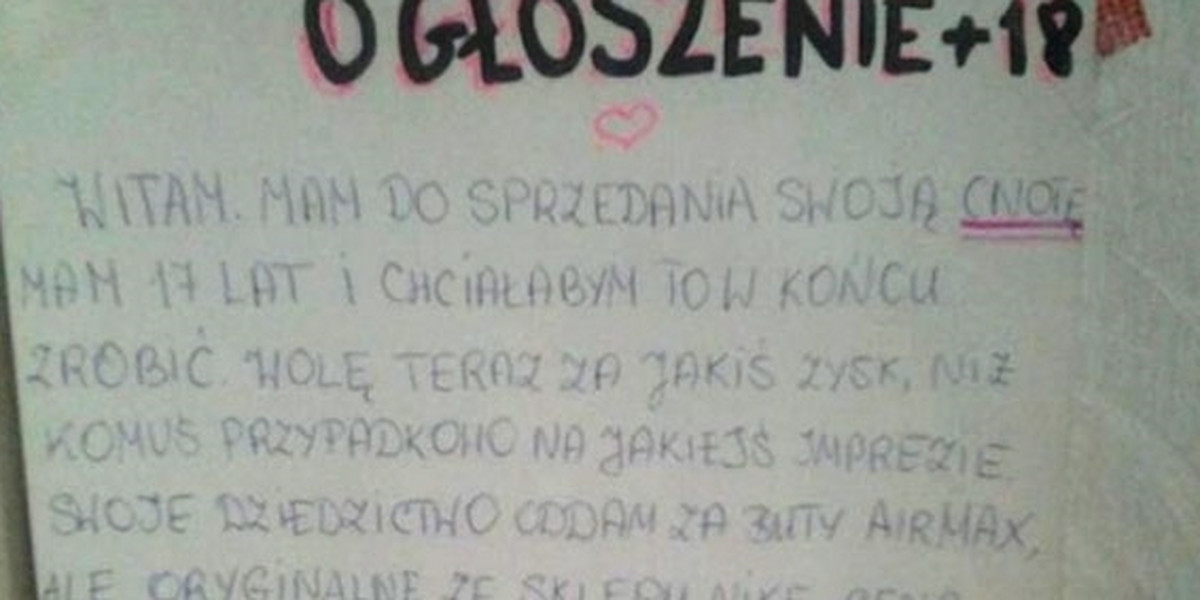 OGŁOSZENIE +18
WITAM. MAM DO SPRZEDANIA SWOJĄ CNOTĘ
MAM 17 LAT i CHCIAŁABYM TO W KOŃCU
ZROBIĆ. WOLĘ TERAZ ZA JAKIŚ ZYSK, NIŻ
KOMUŚ PRZYPADKOWO NA JAKIEJŚ IMPREZIE.
SWOJE DZIEDZICTWO ODDAM ZA BUTY AIRMAX,
ALE ORYGINALNE ZE SKLEPU NIKE